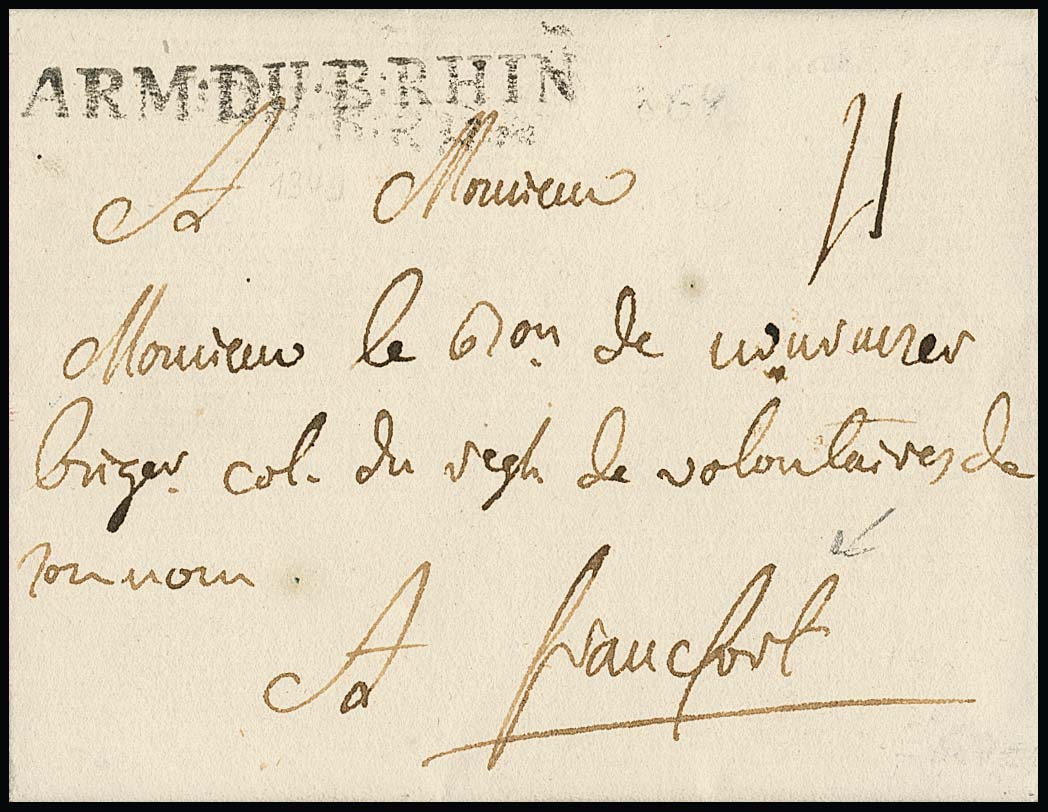 ARM·DU·B·RHIN
A Monsieur
Monsieur le Bon. de
briger. col. du regt. de volontaires de
son nom
A francfort